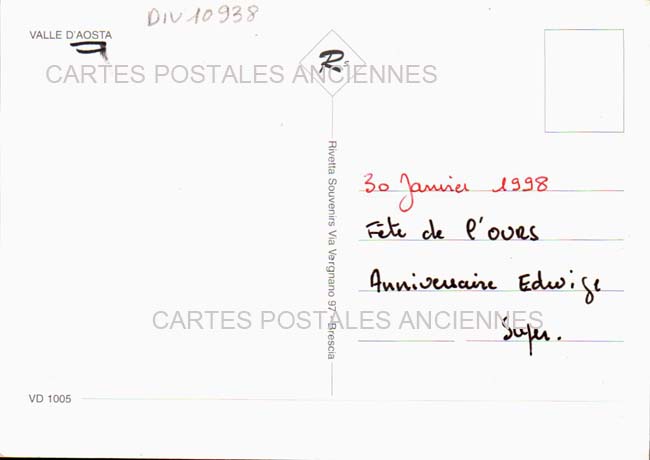 DIV10938
VALLE D'AOSTA
CARTES POSTALES ANCIENNES
RS
30 Janvier 1998
Fête de l'OURS
Anniversaire Edwige
Super.
Rivetta Souvenirs Via Vergnano 97 - Brescia
CARTES POSTALES ANCIENNES
VD 1005